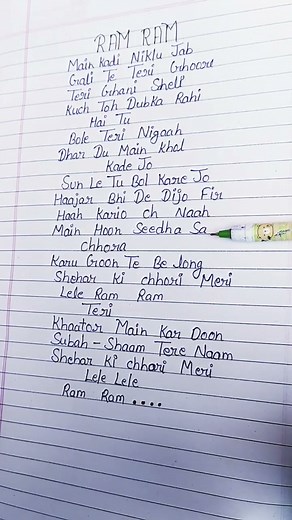 RAM RAM
Main Kadi Niklu Jab
Gali Te Teri Ghoru
Teri Ghani Shelf
Kuch Toh Dubka Rahi
Hai Tu
Bole Teri Nigaah
Dhar Du Main Khol
Kade Jo
Sun Le Tu Bol Kare Jo
Haajar Bhi De Dijo Fir
Haah Kario ch Naah
Main Hoon Seedha Sa
chhora
Karu Groon Te Belong
Shehar Ki chhori Meri
Lele Ram Ram
Teri
Khaatar Main Kar Doon
Subah-Shaam Tere Naam
Shehar Ki chhari Meri
Lele Lele
Ram Ram ....